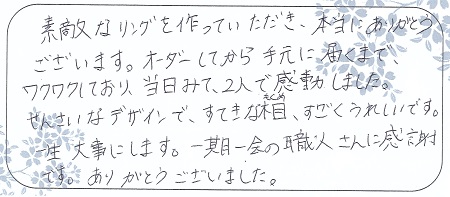 素敵なリングを作っていただき、本当にありがとう
ございます。オーダーしてから手元に届くまで、
ワクワクしており、当日みて、2人で感動しました。
せんさいなデザインで、すてきな木目、すごくうれしいです。
一生大事にします。一期一会の職人さんに感謝
です。ありがとうございました。